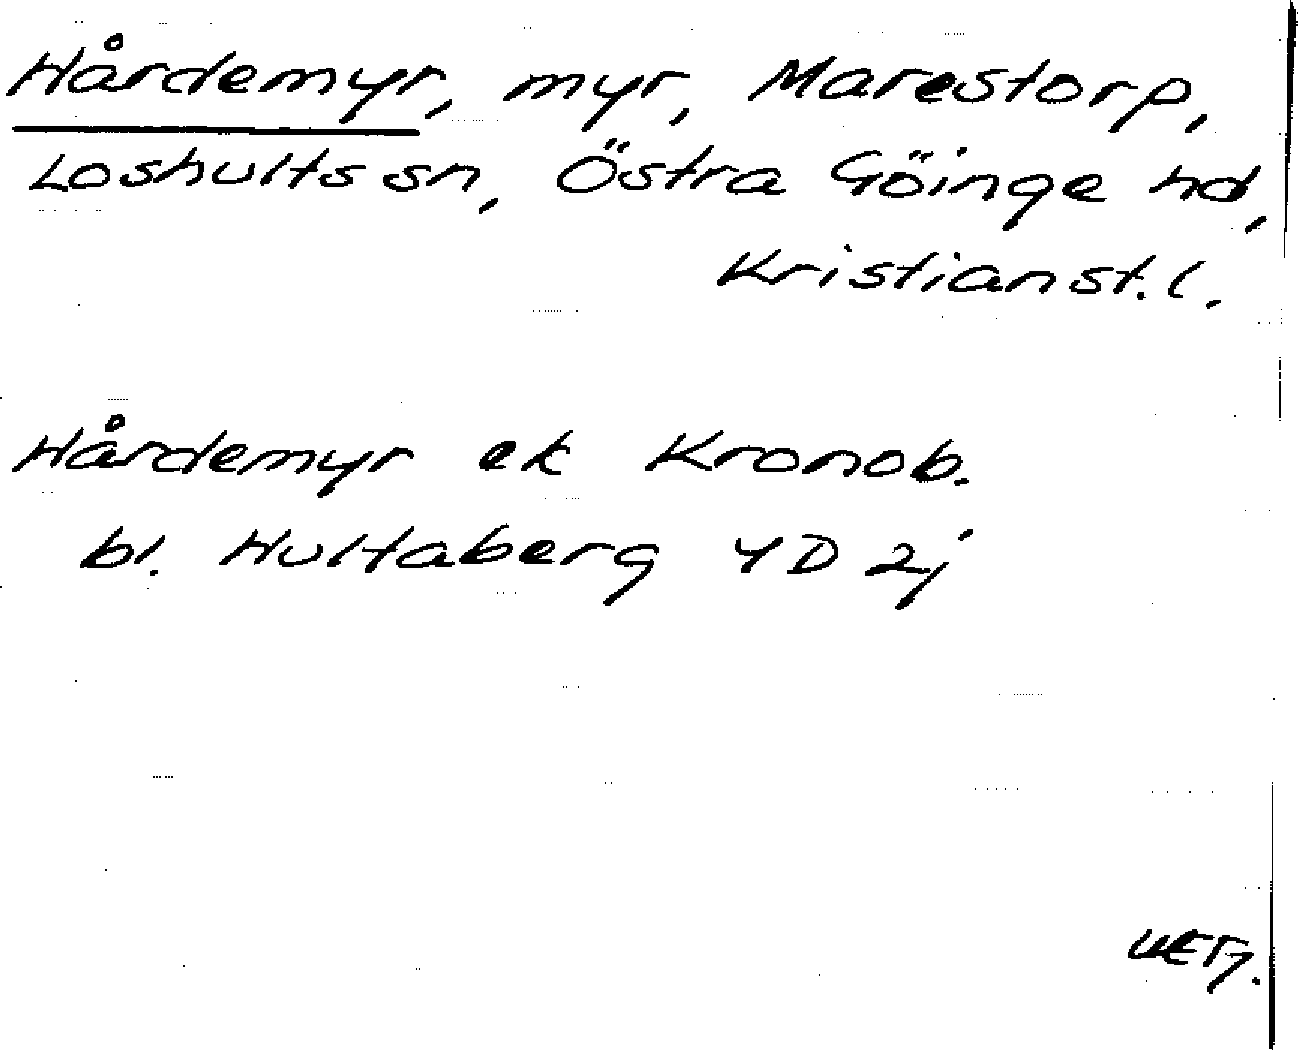 Hårdemyr, myr, Marestorp,
Loshults sn, Östra Göinge hd,
Kristianst. l.
Hårdemyr ek Kronob.
bl. Hultaberg 4D 2j